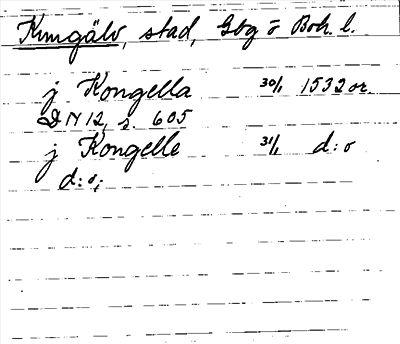 Kungälv, stad, Gbg o Boh. l.
j Kongella 30/1 1532 or.
DN 12, s. 605
j Kongelle 31/1 d:o
d:o;